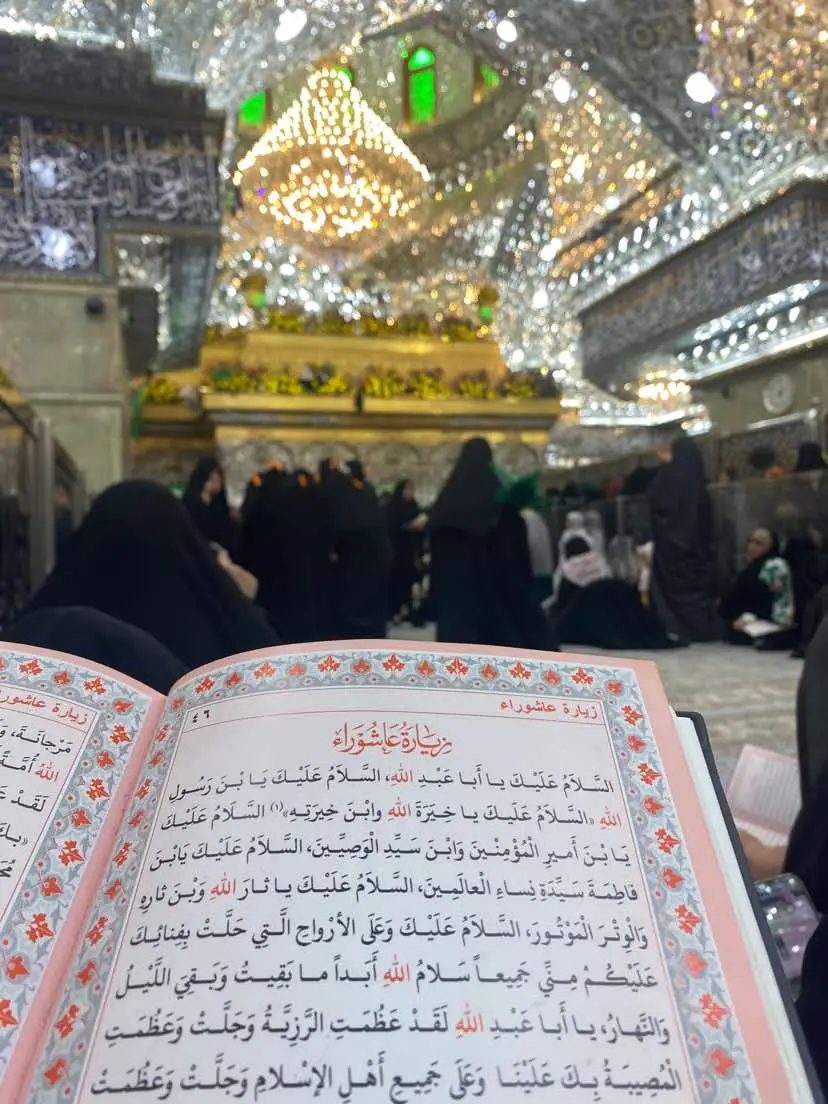 زيارة عاشوراء
٤٦
زِيَارَةُ عَاشُوْرَاءَ
السَّلاَمُ عَلَيْكَ يا أَبا عَبْدِ اللهِ، السَّلاَمُ عَلَيْكَ يَا بْنَ رَسُولِ
اللهِ «السَّلاَمُ عَلَيكَ يـا خِيَرَةَ اللهِ وابْنَ خِيَرَتِهِ»(١) السَّلاَمُ عَلَيْكَ
يَا بْنَ أَميرِ الْمُؤْمِنْينَ وَابْنَ سَيِّدِ الْوَصِيّينَ، السَّلاَمُ عَلَيْكَ يَابْنَ
فاطِمَةَ سَيِّدَةِ نِساءِ الْعالَمِينَ، السَّلاَمُ عَلَيْكَ يا ثارَ اللهِ وَبْنَ ثارِهِ
وَالْوِتْرَ الْمَوْتُورَ، السَّلاَمُ عَلَيْكَ وَعَلَى الأرْواحِ الَّتِي حَلَّتْ بِفِنائِكَ
عَلَيكُمْ مِنِّي جَمِيعاً سَلامُ اللهِ أَبَداً ما بَقِيتُ وَبَقِيَ اللَّيْلُ
وَالنَّهارُ، يـا أَبـا عَبْدِ اللهِ لَقَدْ عَظُمَتِ الرَّزِيَّةُ وَجَلَّتْ وَعَظُمَتِ
الْمُصِيبَةُ بِكَ عَلَيْنَا وَعَلَى جَمِيعِ أَهْلِ الإسْلامِ وَجَلَّتْ وَعَظُمَتْ
زيارة عاشوراء
مَرْجانَةَ،
اللهُ أُمَّةً
لَقَدْ